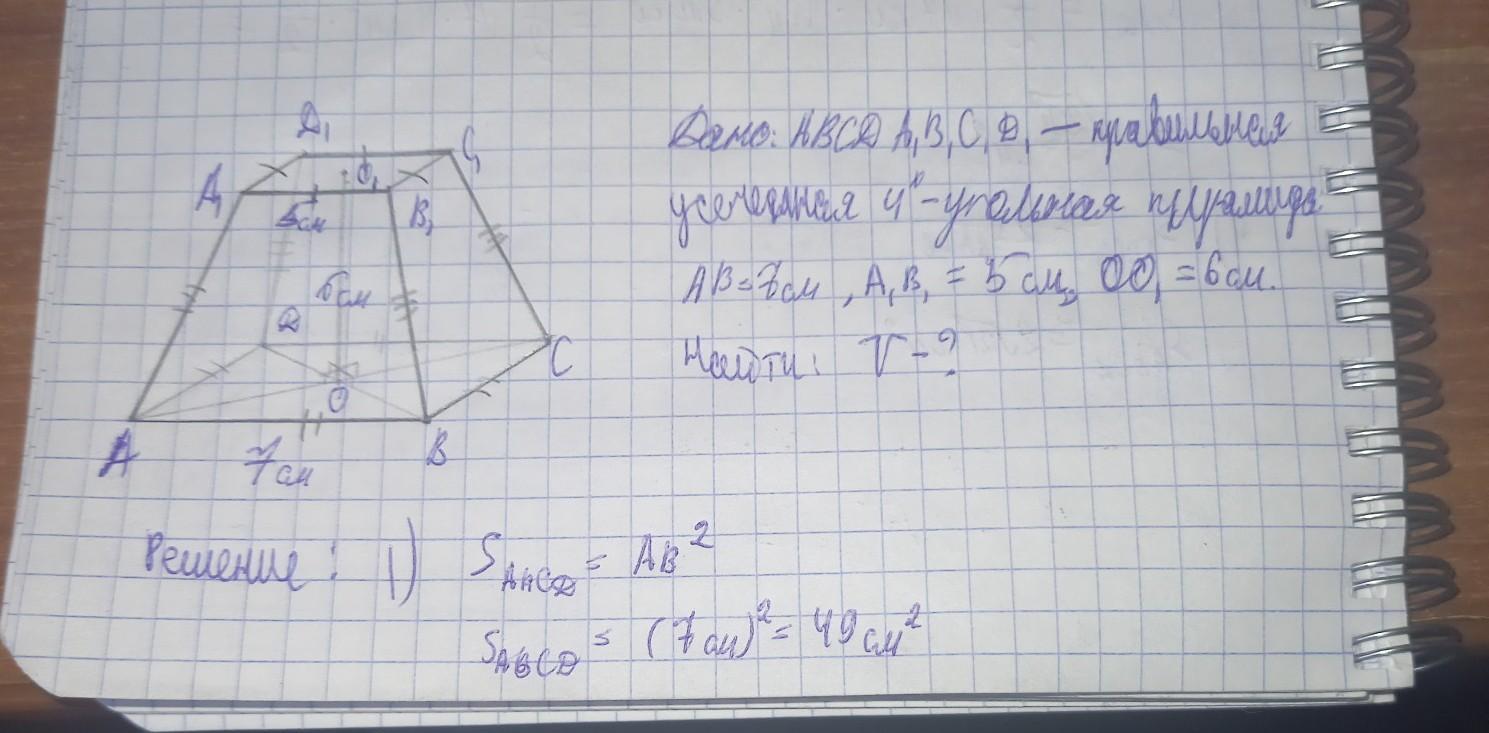 D₁
C₁
O₁
A₁
B₁
5см
6см
D
C
O
A
B
7см
Дано: ABCD A₁B₁C₁D₁ — правильная
усечённая 4ᵃ-угольная пирамида
AB=7см, A₁B₁ = 5 см, OO₁ = 6см.
Найти: V - ?
Решение: 1) S_ABCD = AB²
S_ABCD = (7см)² = 49 см²